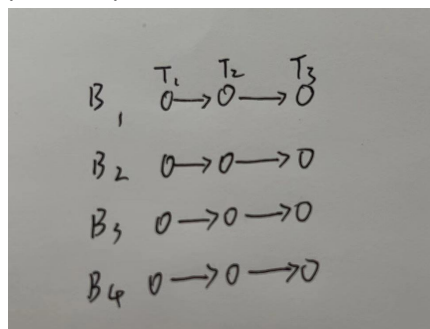 T1 T2 T3
B1 0→0→0
B2 0→0→0
B3 0→0→0
B4 0→0→0